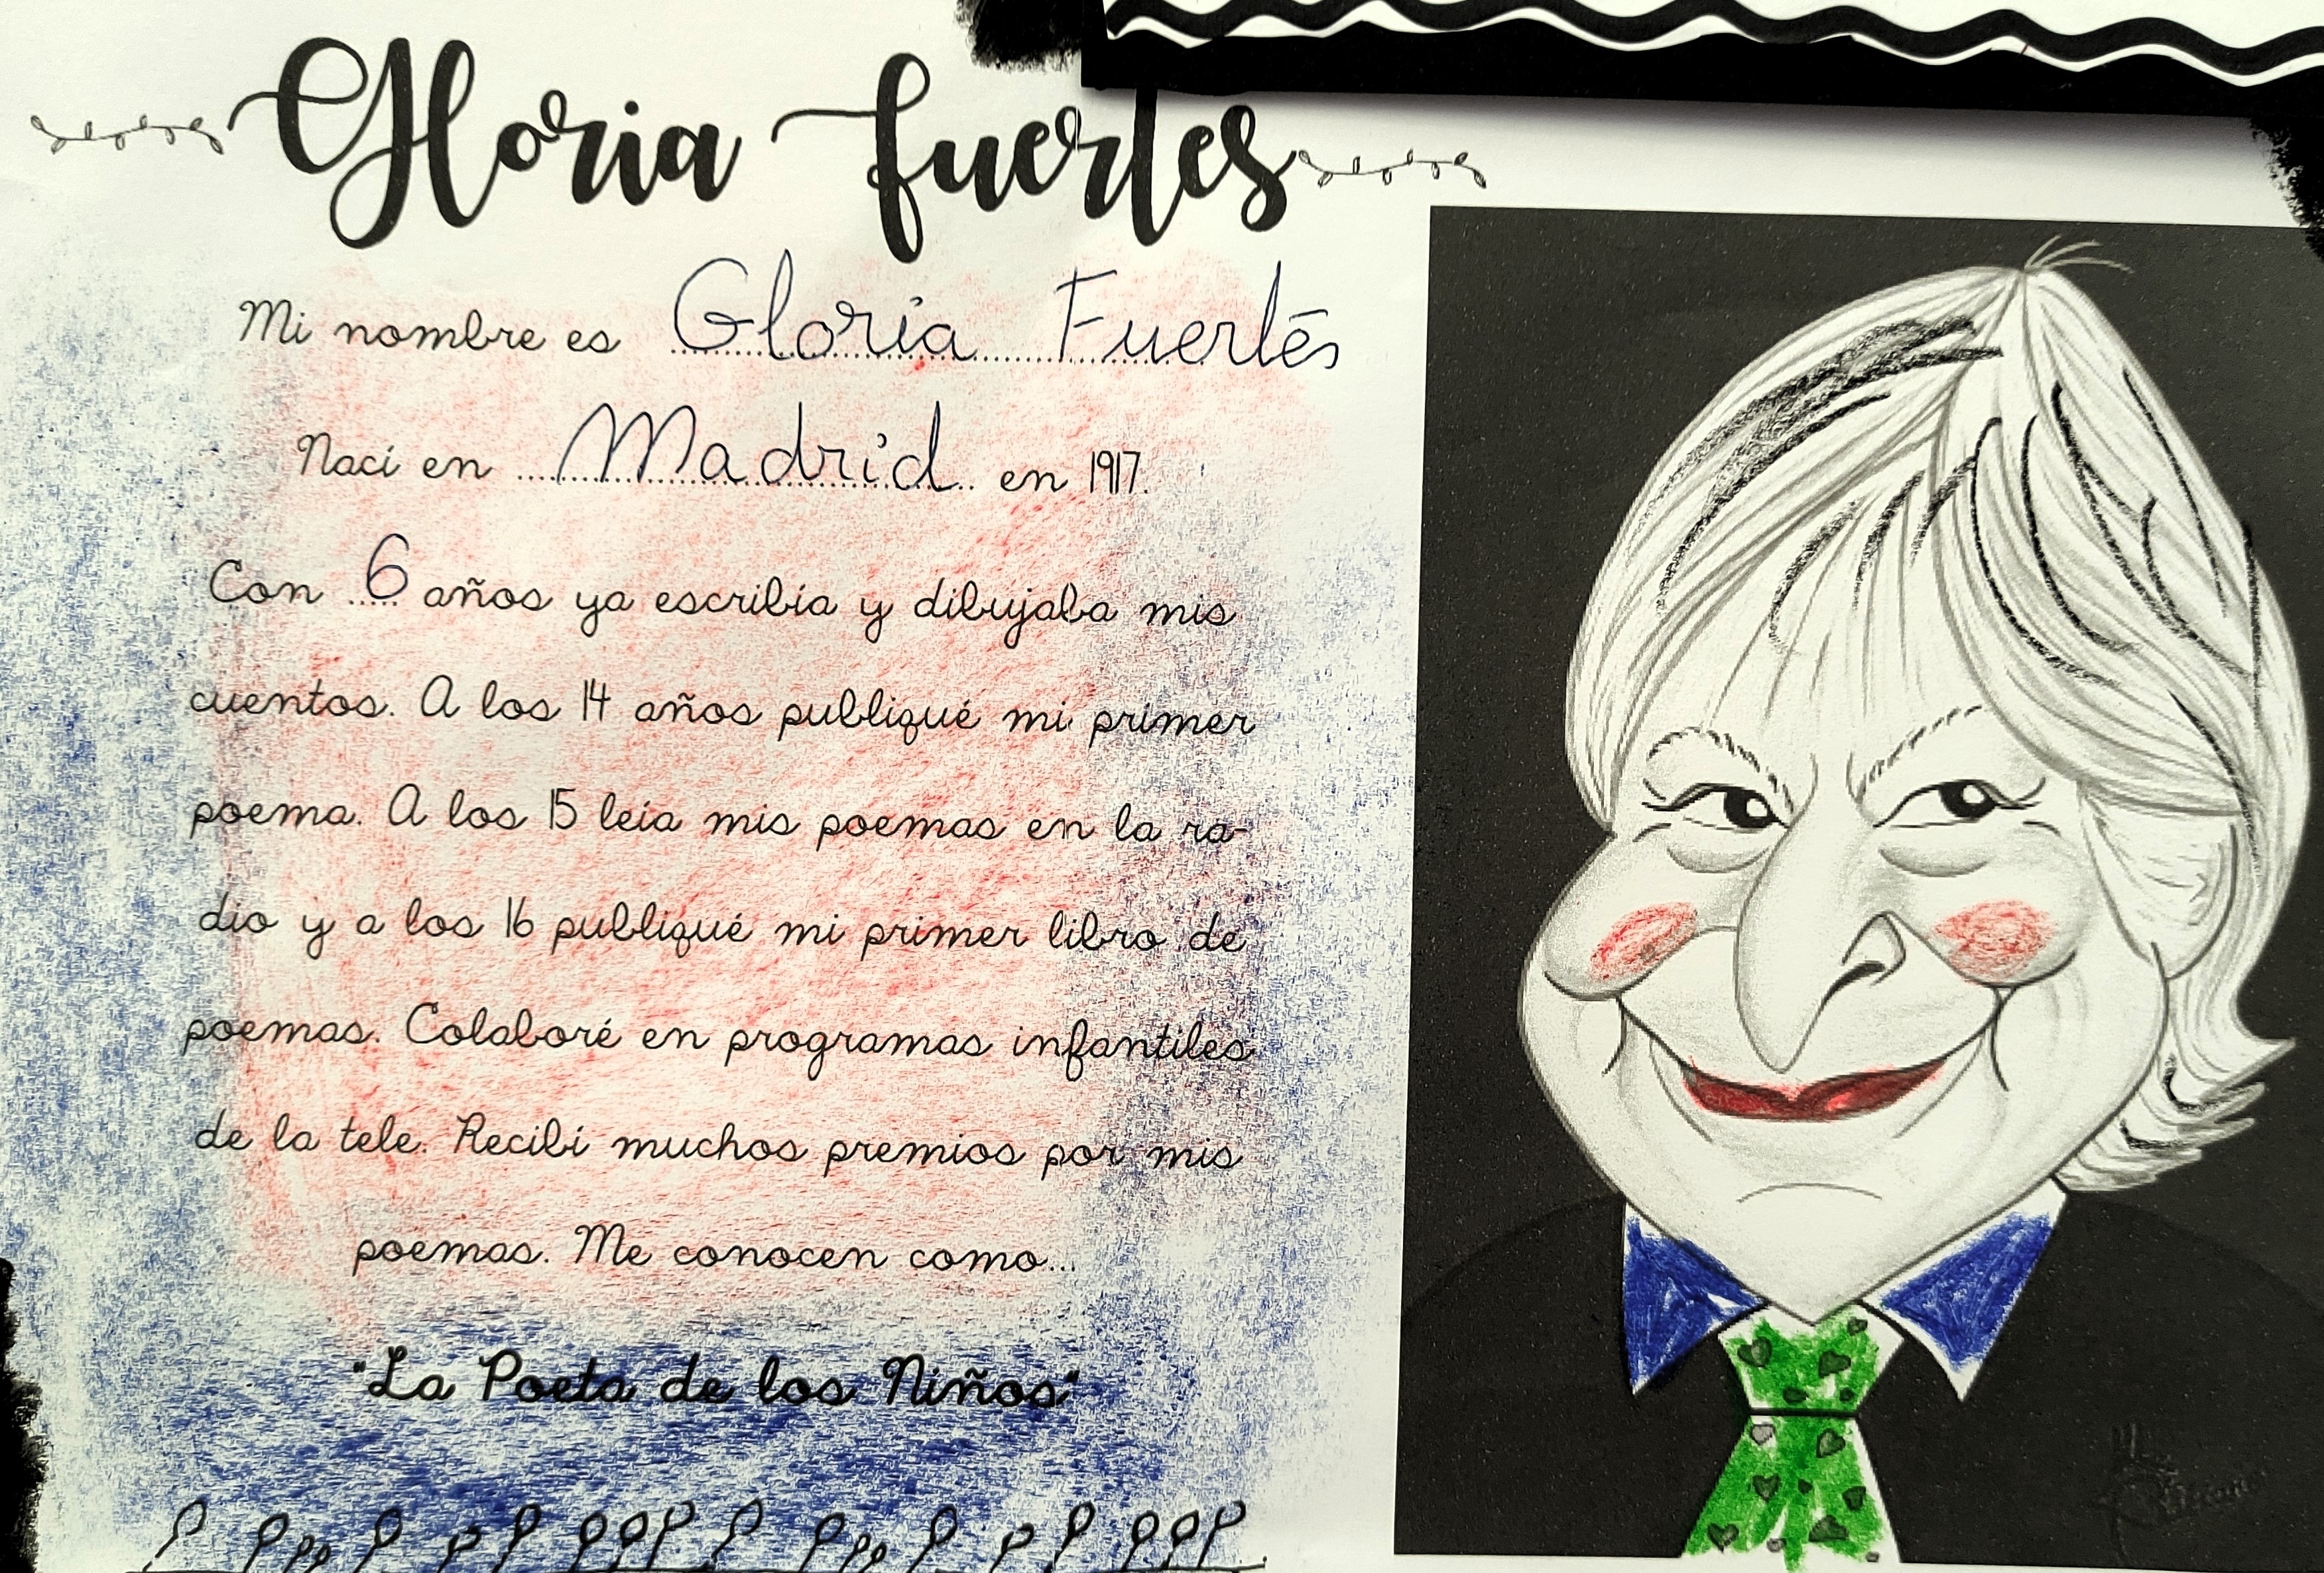 Gloria fuertes
Mi nombre es Gloria Fuertes
Nací en Madrid en 1917.
Con 6 años ya escribía y dibujaba mis
cuentos. A los 14 años publiqué mi primer
poema. A los 15 leía mis poemas en la ra-
dio y a los 16 publiqué mi primer libro de
poemas. Colaboré en programas infantiles
de la tele. Recibí muchos premios por mis
poemas. Me conocen como...
"La Poeta de los Niños"